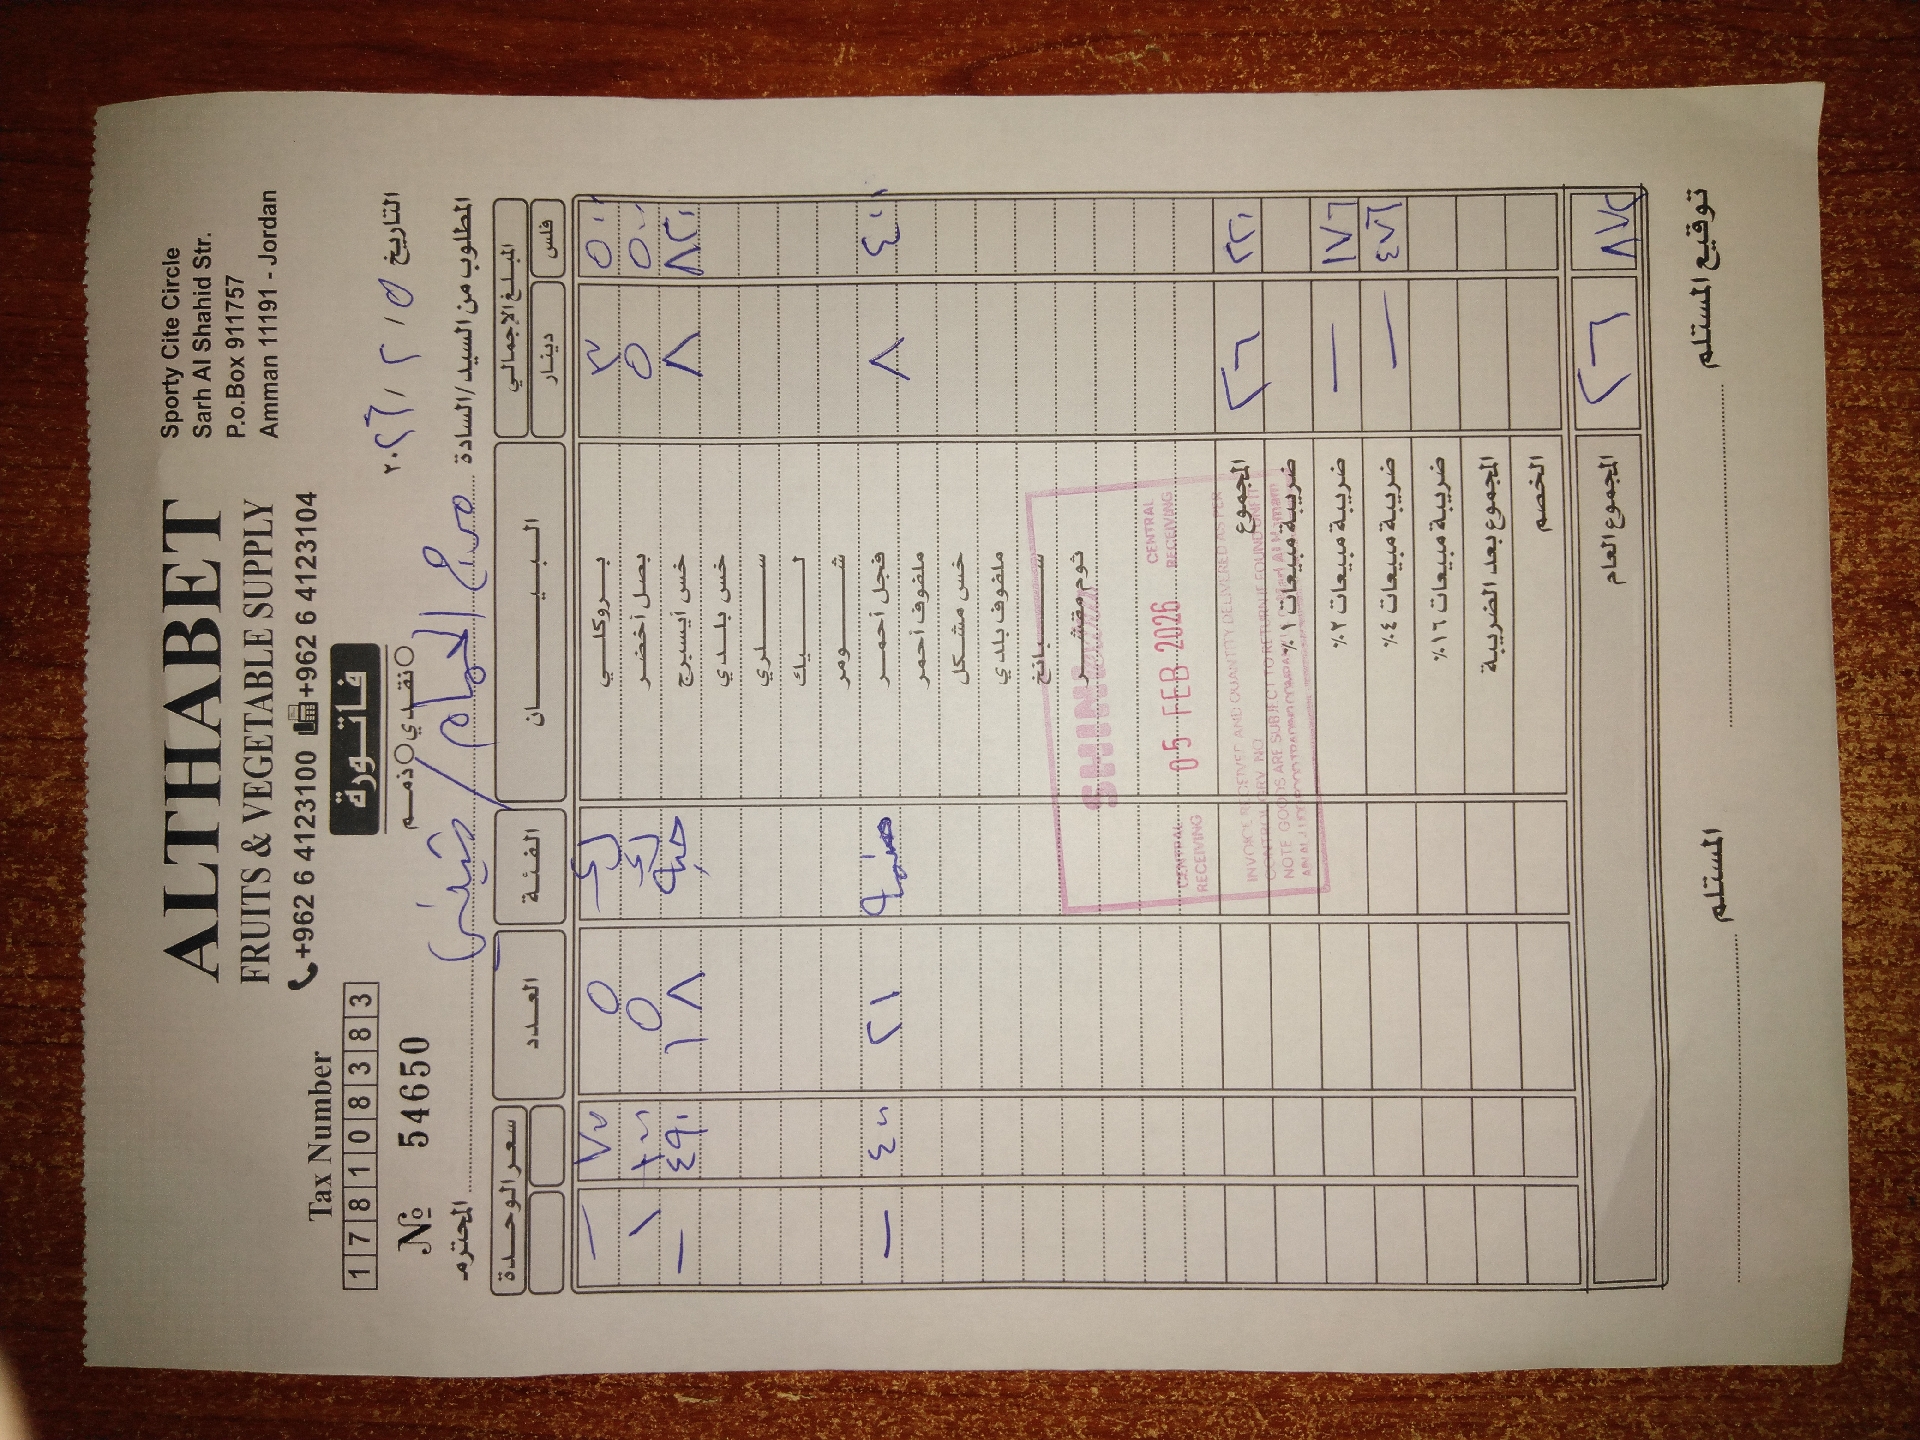 ALTHABET
FRUITS & VEGETABLE SUPPLY
+962 6 4123100 +962 6 4123104
Sporty Cite Circle
Sarh Al Shahid Str.
P.o.Box 911757
Amman 11191 - Jordan
Tax Number
1 7 8 1 0 8 3 8 3
№ 54650
فاتورة
نقدي ذمم
التاريخ ٥ / ٢ / ٢٠٢٦
المطلوب من السيد/السادة المحترم
المبلغ الاجمالي البيان الفئة العدد سعر الوحدة
فلس دينار
٥٠٠ ٣ بروكلي ٥ ٧٠٠ —
٥٠٠ ٥ بصل أخضر ٥ ١٠٠ ١
٨٢٠ ٨ خس أيسبرج حبة ١٨ ٤٩٠ —
خس بلدي
سلري
ليك
شومر
٤٠٠ ٨ فجل أحمر ٢١ ٤٠٠ —
ملفوف أحمر
خس مشكل
ملفوف بلدي
سبانخ
ثوم مقشر
CENTRAL RECEIVING 05 FEB 2026 CENTRAL RECEIVING
INVOICE RECEIVED AND QUANTITY DELIVERED AS PER
NOTE GOODS ARE SUBJECT TO RETURN IF FOUND UNFIT
٢٢٠ ٢٦ المجموع
ضريبة مبيعات ١٪
١٧٦ — ضريبة مبيعات ٢٪
٤٧٦ — ضريبة مبيعات ٤٪
ضريبة مبيعات ١٦٪
المجموع بعد الضريبة
الخصم
٨٧٢ ٢٦ المجموع العام
توقيع المستلم المستلم